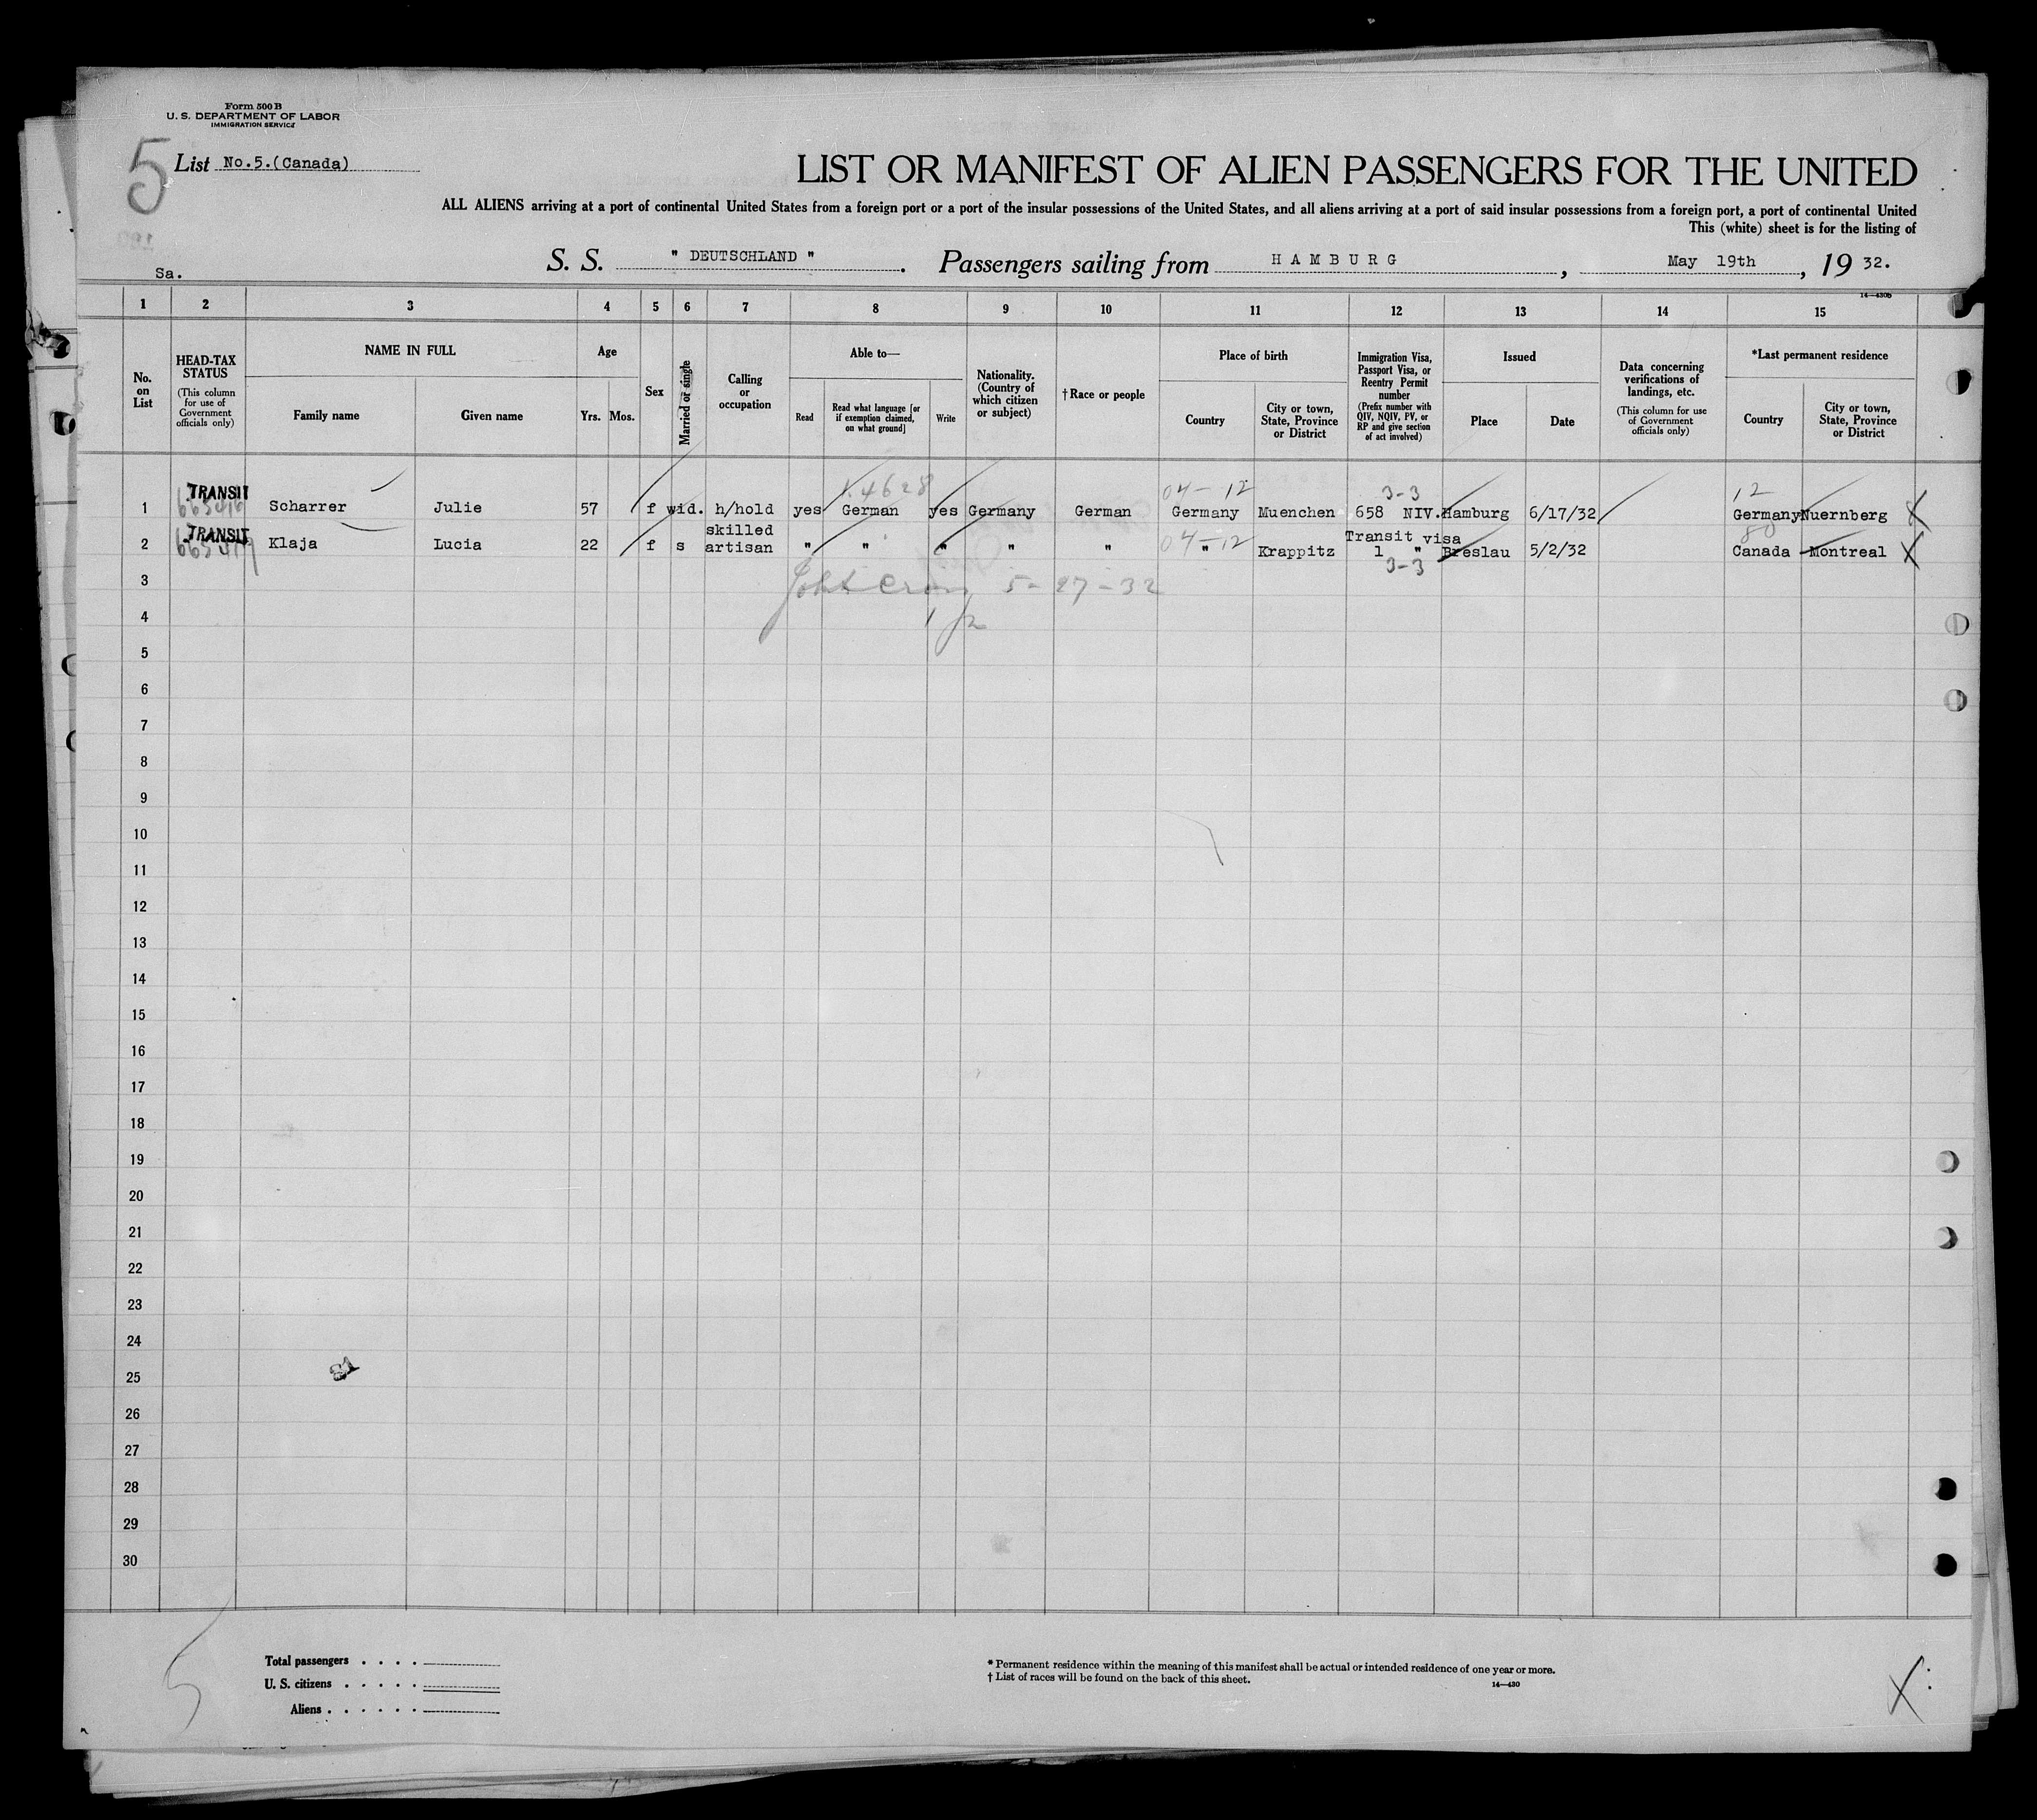 Form 500 B
U. S. DEPARTMENT OF LABOR
IMMIGRATION SERVICE
5
List No.5.(Canada)
LIST OR MANIFEST OF ALIEN PASSENGERS FOR THE UNITED
ALL ALIENS arriving at a port of continental United States from a foreign port or a port of the insular possessions of the United States, and all aliens arriving at a port of said insular possessions from a foreign port, a port of continental United
This (white) sheet is for the listing of
Sa.
S. S. " DEUTSCHLAND ". Passengers sailing from HAMBURG, May 19th, 19 32.
14—430b
1 2 3 4 5 6 7 8 9 10 11 12 13 14 15
No. on List
HEAD-TAX STATUS (This column for use of Government officials only)
NAME IN FULL
Family name Given name
Age
Yrs. Mos.
Sex
Married or single
Calling or occupation
Able to—
Read Read what language [or if exemption claimed, on what ground] Write
Nationality. (Country of which citizen or subject)
† Race or people
Place of birth
Country City or town, State, Province or District
Immigration Visa, Passport Visa, or Reentry Permit number (Prefix number with QIV, NQIV, PV, or RP and give section of act involved)
Issued
Place Date
Data concerning verifications of landings, etc. (This column for use of Government officials only)
*Last permanent residence
Country City or town, State, Province or District
04-12 3-3 12
1 TRANSIT Scharrer Julie 57 f wid. h/hold yes German yes Germany German Germany Muenchen 658 NIV. Hamburg 6/17/32 Germany Nuernberg X
2 TRANSIT Klaja Lucia 22 f s skilled artisan " " " " " 04-12 " Krappitz Transit visa 1 " Breslau 5/2/32 80 Canada Montreal X
3-3
3 5-27-32
4
5
6
7
8
9
10
11
12
13
14
15
16
17
18
19
20
21
22
23
24
25
26
27
28
29
30
5
Total passengers . . . .
U. S. citizens . . . . .
Aliens . . . . . .
* Permanent residence within the meaning of this manifest shall be actual or intended residence of one year or more.
† List of races will be found on the back of this sheet.
14—430
X